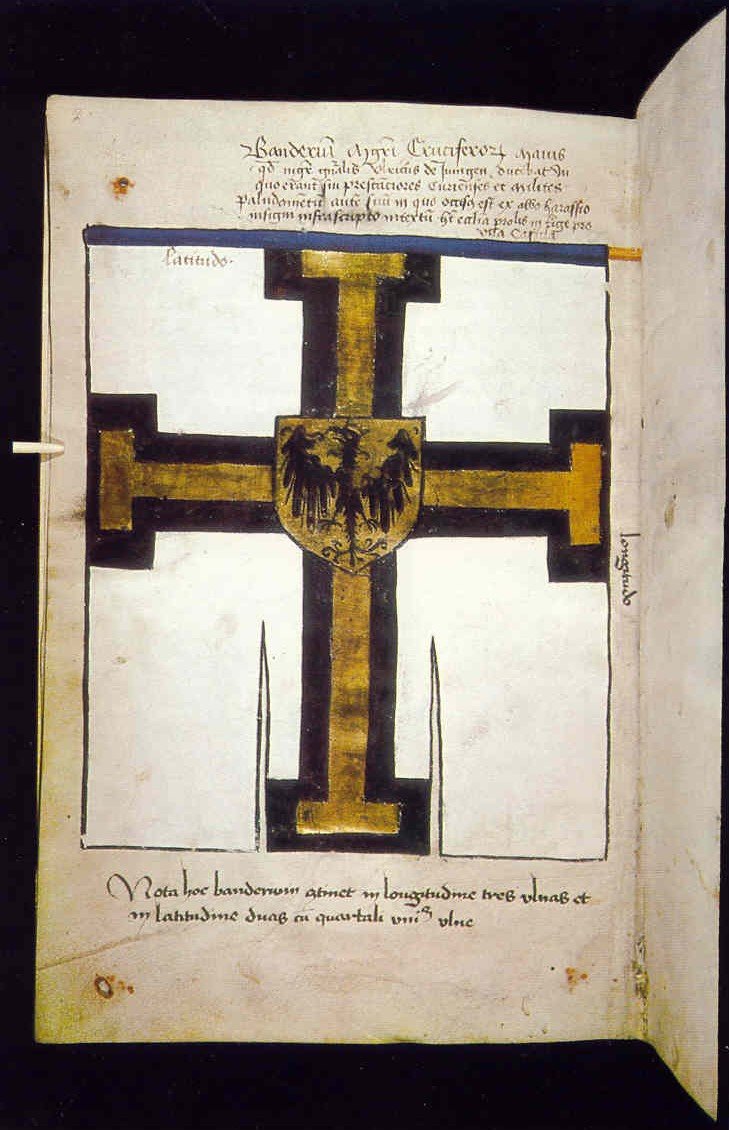 Banderiū Mgrī Cruciferor̄ Maius
qd mgr gn̄alis Vlricus de Jungen ducebat In
quo erant sui prestantiores Curienses et milites
Paludamētū autē suū in quo occisus est ex albo harassio
insigni infrascripto intextū ht̄ ecclia in pro
villa
latitudo.
longitudo
Nota hoc banderium 9tinet in longitudine tres vlnas et
in latitudine duas cū quartali vniꝰ vlne